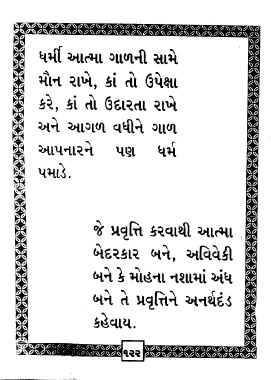 ધર્મી આત્મા ગાળની સામે
મૌન રાખે, કાં તો ઉપેક્ષા
કરે, કાં તો ઉદારતા રાખે
અને આગળ વધીને ગાળ
આપનારને પણ ધર્મ
પમાડે.
જે પ્રવૃત્તિ કરવાથી આત્મા
બેદરકાર બને, અવિવેકી
બને કે મોહના નશામાં અંધ
બને તે પ્રવૃત્તિને અનર્થદંડ
કહેવાય.
૧૨૨